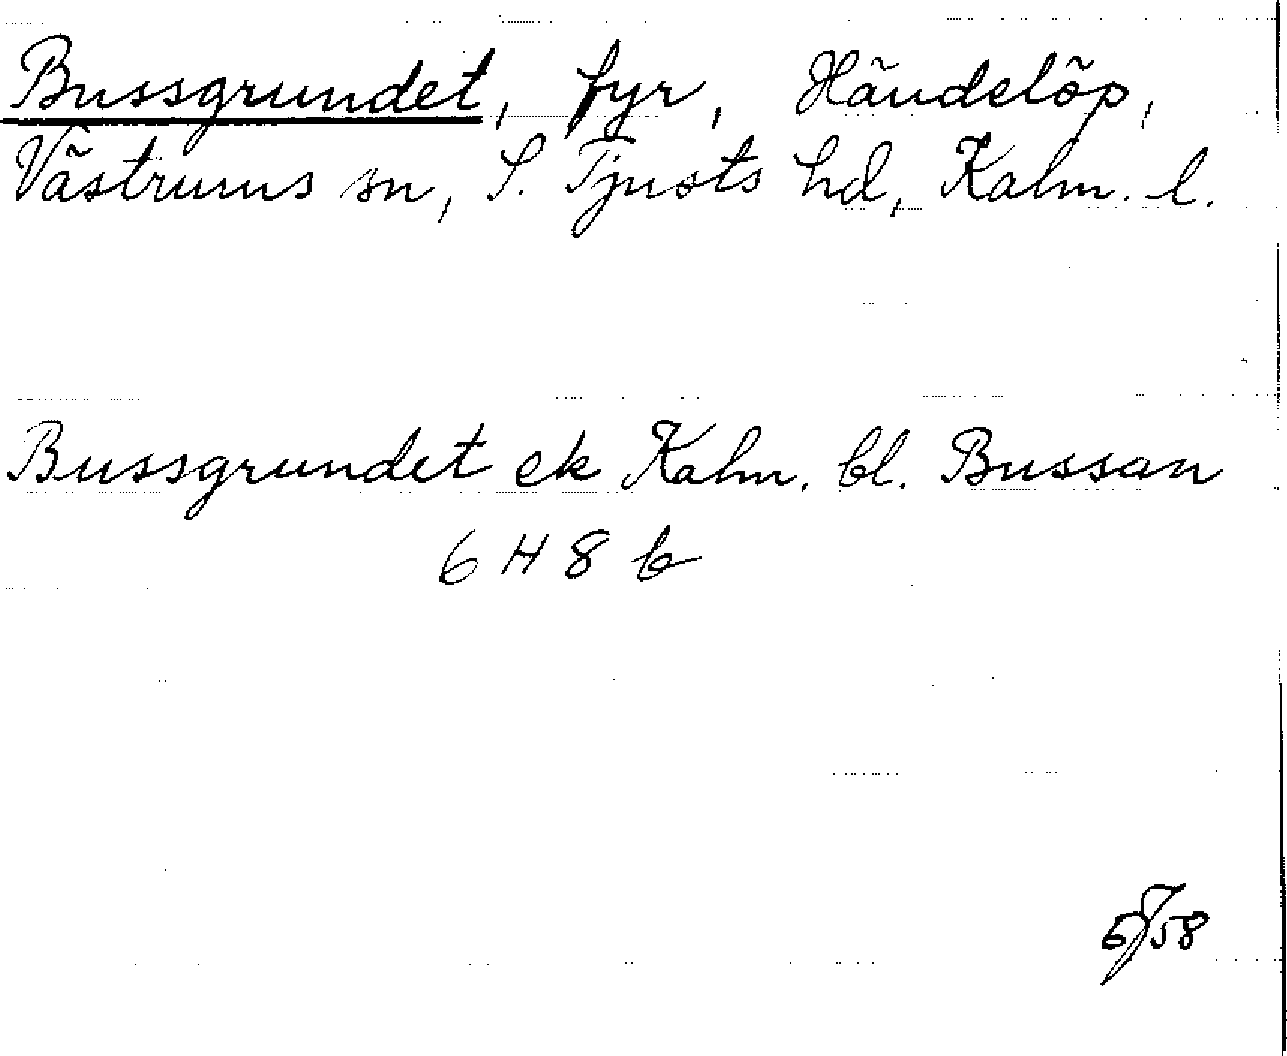 Bussgrundet, fyr, Händelöp,
Västrums sn, S. Tjusts hd, Kalm. l.
Bussgrundet ek Kalm. bl. Bussan
6 H 8 b
58